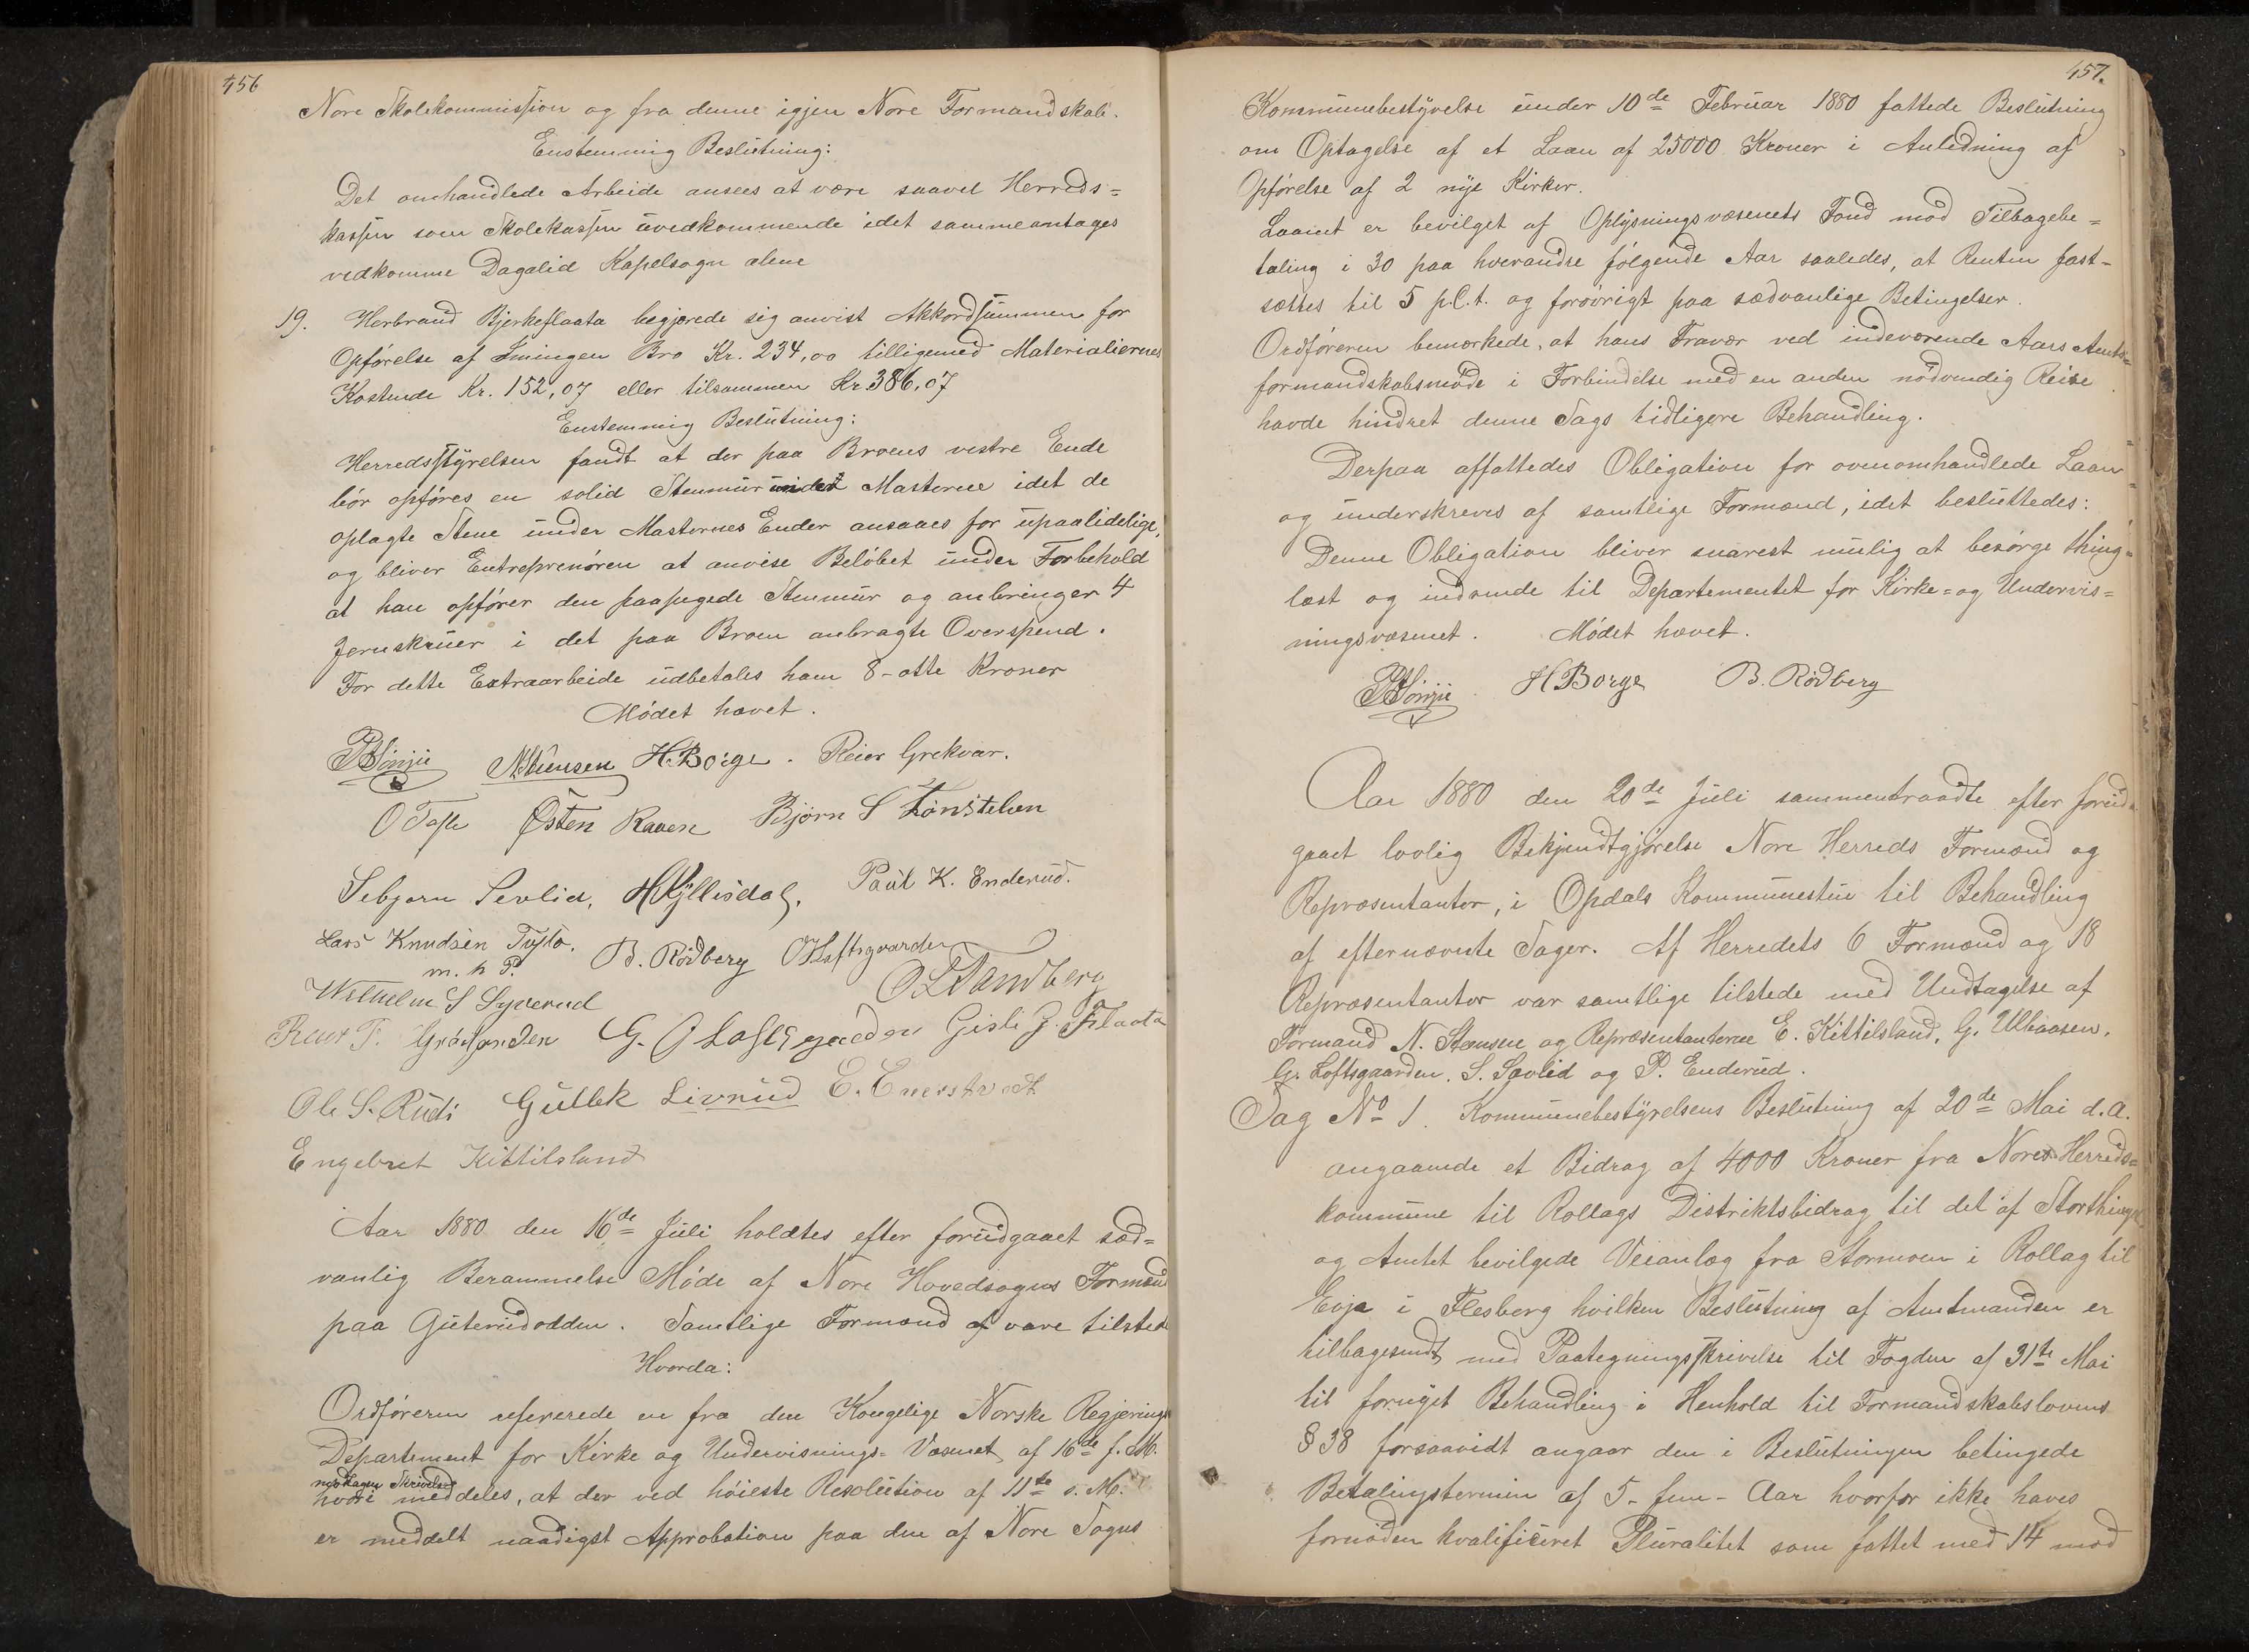 456
Nore Skolekommission og fra denne igjen Nore Formandskab.
Enstemmig Beslutning:
Det omhandlede Arbeide ansees at være saavel Herreds=
kassen som Skolekassen uvedkommende idet samme antages
vedkomme Dagalid Kapelsogn alene
19. Herbrand Bjerkeflaata begjærede sig anvist Akkordsummen for
Opførelse af Smingen Bro Kr. 234,00 tilligemed Materialiernes
Kostende Kr. 152,07 eller tilsammen Kr 386,07
Enstemmig Beslutning:
Herredsstyrelsen fandt at der paa Broens vestre Ende
bør opføres en solid Stenmur under Masterne idet de
oplagte Stene under Masternes Ender ansaaes for upaalidelige,
og bliver Entreprenøren at anvise Beløbet under Forbehold
at han opfører den paapegede Stenmur og anbringer 4
Jernskruer i det paa Broen anbragte Overspend.
For dette Extraarbeide udbetales ham 8-otte Kroner
Mødet hævet.
H Borge. Reier Grekvar.
O Tofte Østen Raaen Bjørn S
Sebjørn Sevlid, H Kjllisdal, Paul K. Enderud.
Lars Knudsen Tufto. B. Rødberg O Loftsgaarden
m. h P.
Wilhelm S Syverud O L Tandberg
G. O Loftsgaarden Gisle J. Flaata
Ole S. Rudi Gullek Livrud E. Enerstvedt
Engebret Kittilsland
Aar 1880 den 16de Juli holdtes efter forudgaaet sæd=
vanlig Berammelse Møde af Nore Hovedsogns Formænd
paa Guterudodden. Samtlige Formænd af vare tilstede
Hvorda:
Ordføreren refererede en fra den Kongelige Norske Regjerings
Departement for Kirke og Undervisnings= Væsenet af 16de f. M.
modtagen Skrivelse
hvori meddeles, at der ved høieste Resolution af 11te s. M.
er meddelt naadigst Approbation paa den af Nore Sogns
457.
Kommunebestyrelse under 10de Februar 1880 fattede Beslutning
om Optagelse af et Laan af 25000 Kroner i Anledning af
Opførelse af 2 nye Kirker.
Laanet er bevilget af Oplysningsvæsenets Fond mod Tilbagebe=
taling i 30 paa hverandre følgende Aar saaledes, at Renten fast=
sættes til 5 p.C.t. og forøvrigt paa sædvanlige Betingelser.
Ordføreren bemærkede, at hans Fravær ved indeværende Aars Amts=
formandskabsmøde i Forbindelse med en anden nødvendig Reise
havde hindret denne Sags tidligere Behandling.
Derpaa affattedes Obligation for ovenomhandlede Laan
og underskreves af samtlige Formænd, idet besluttedes:
Denne Obligation bliver snarest mulig at besørge thing=
læst og indsende til Departementet for Kirke= og Undervis=
ningsvæsenet. Mødet hævet.
H Borge B. Rødberg
Aar 1880 den 20de Juli sammentraadte efter forud
gaaet lovlig Bekjendtgjørelse Nore Herreds Formænd og
Repræsentanter, i Opdals Kommunestue til Behandling
af efternævnte Sager. Af Herredets 6 Formænd og 18
Repræsentanter var samtlige tilstede med Undtagelse af
Formand N. Steensen og Repræsentanterne E. Kittilsland, G. Ulbaasen,
G. Loftsgaarden, S. Sævlid og P. Enderud.
Sag No 1. Kommunebestyrelsens Beslutning af 20de Mai d.A.
angaaende et Bidrag af 4000 Kroner fra Nores Herreds=
kommune til Rollags Distriktsbidrag til det af Storthinget
og Amtet bevilgede Veianlæg fra Stormoen i Rollag til
Evja i Flesberg hvilken Beslutning af Amtmanden er
tilbagesendt med Paategningsskrivelse til Fogden af 31te Mai
til fornyet Behandling i Henhold til Formandskabslovens
§ 38 forsaavidt angaar den i Beslutningen betingede
Betalingstermin af 5- fem- Aar hvorfor ikke haves
fornøden kvalificeret Pluralitet som fattet med 14 mod